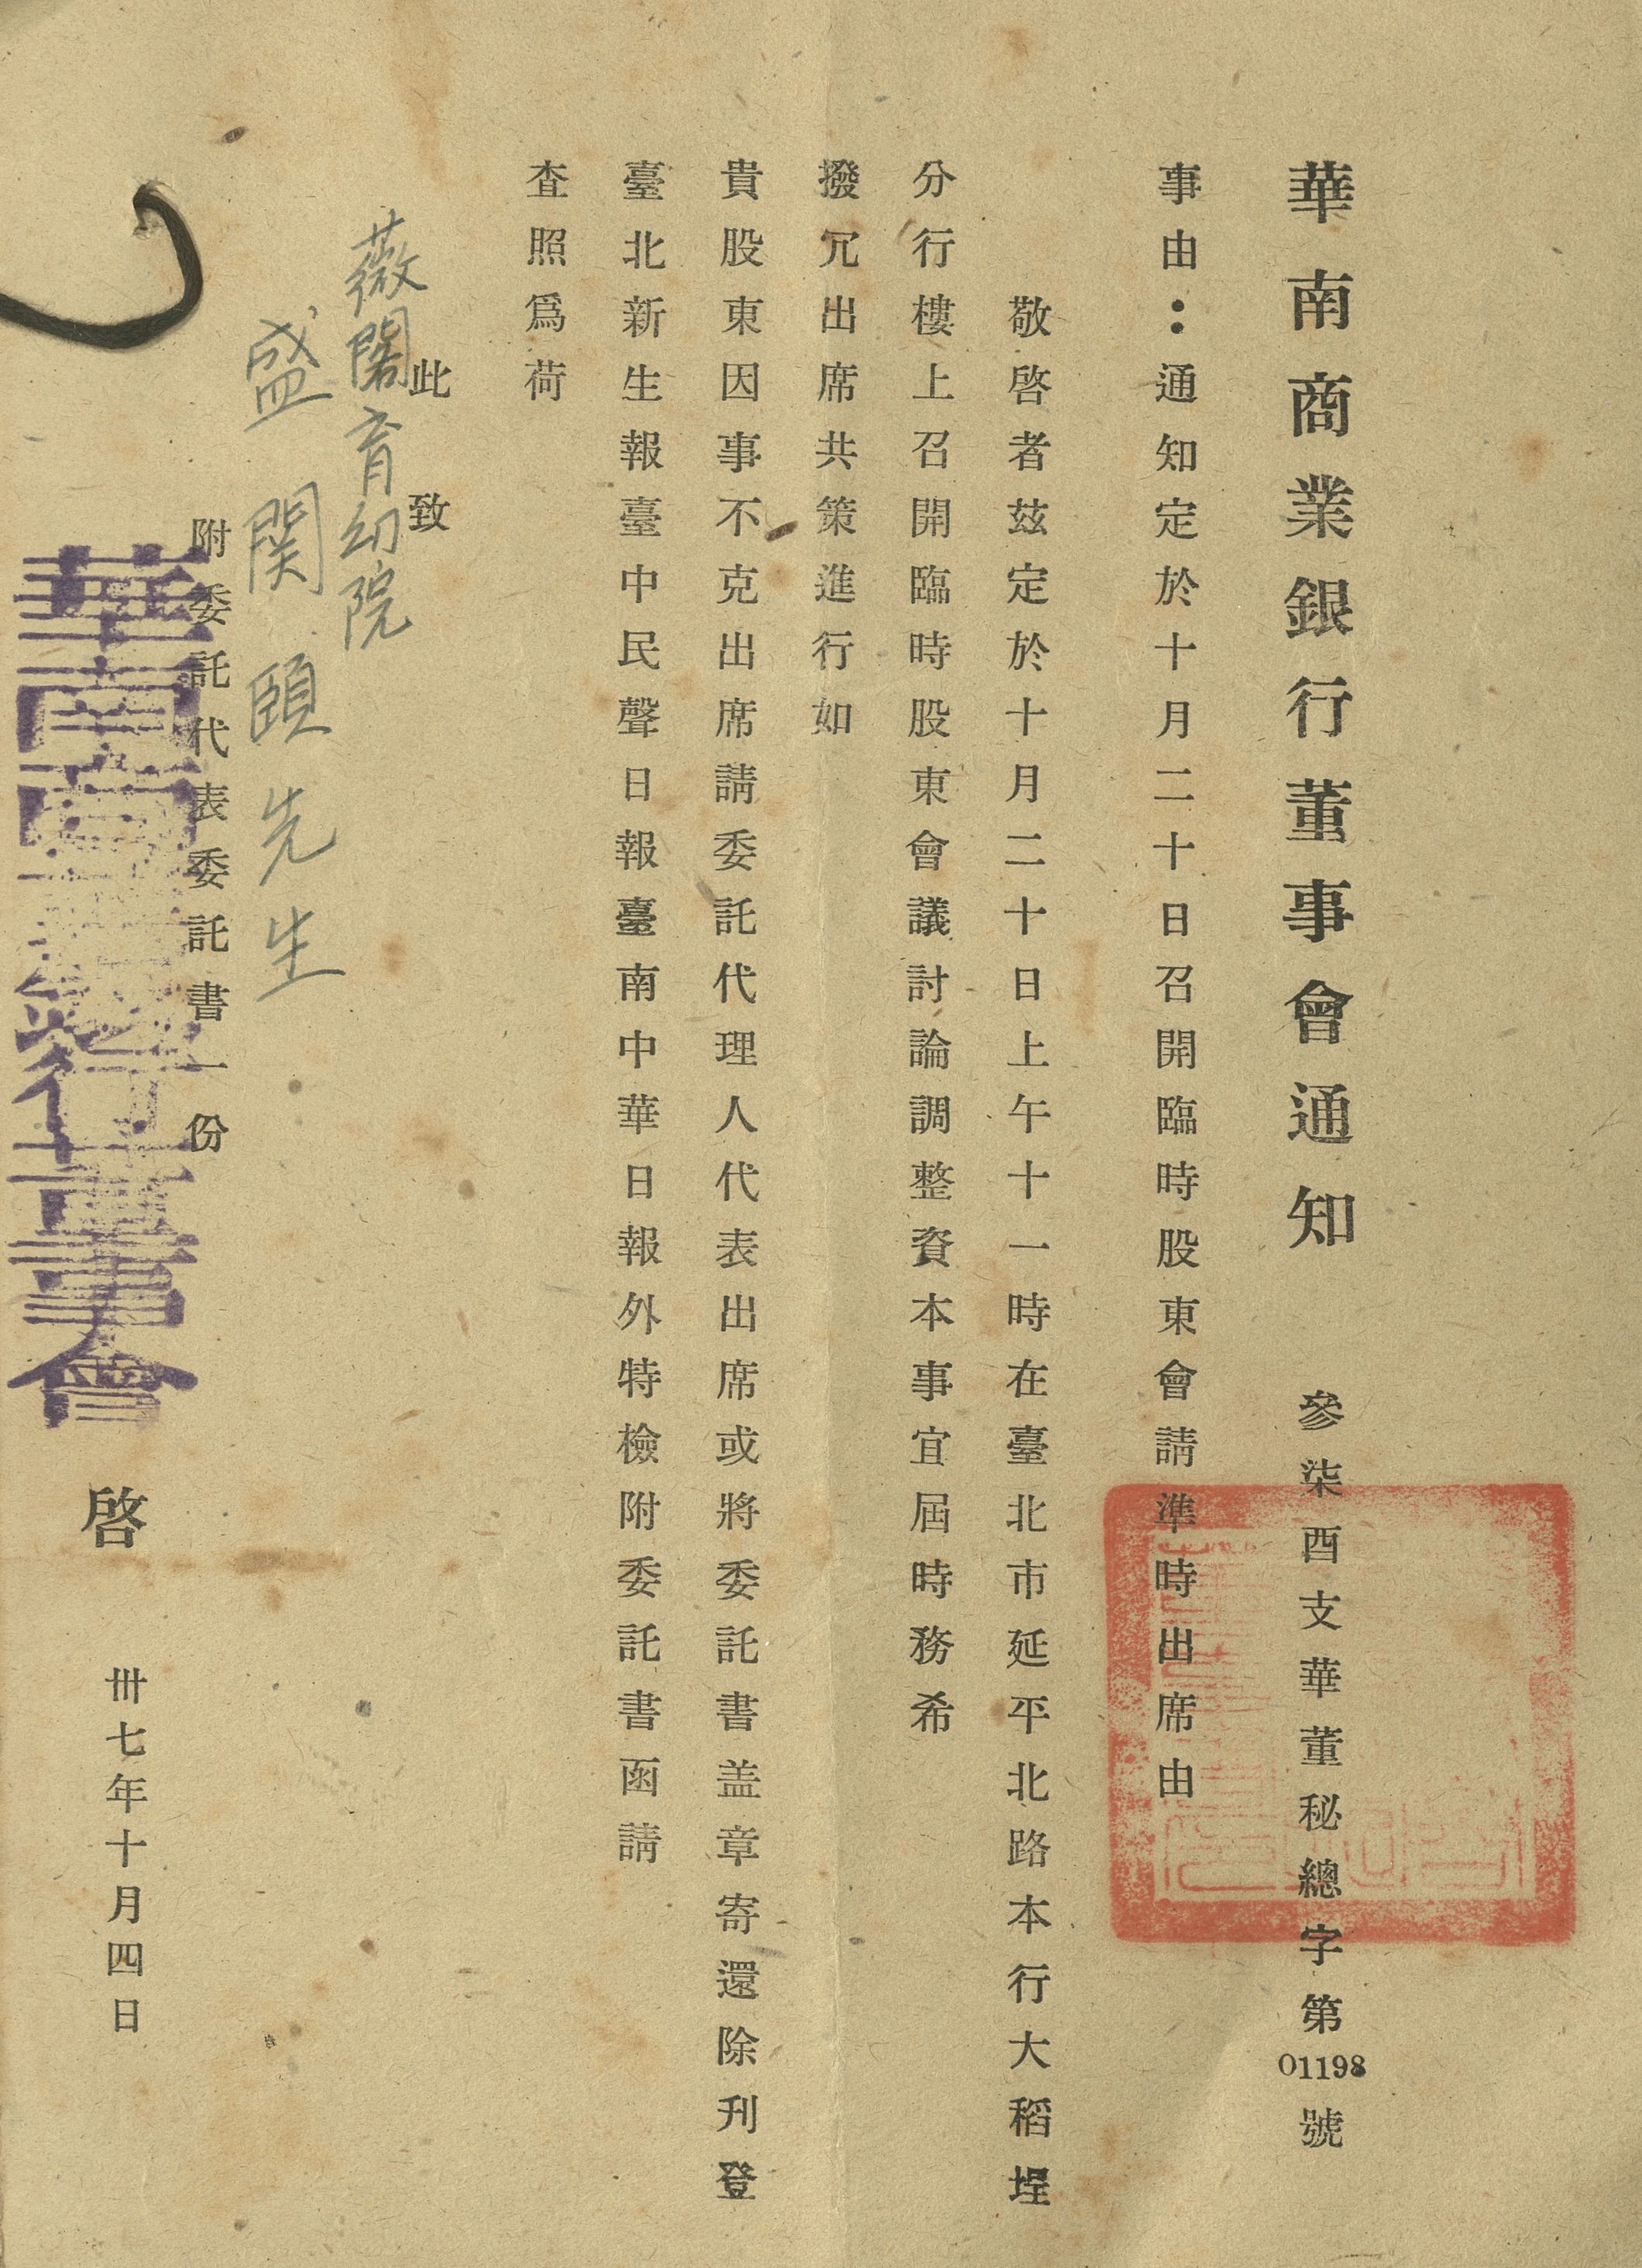 華南商業銀行董事會通知　參柒酉支華董秘總字第01198號
事由：通知定於十月二十日召開臨時股東會請準時出席由
敬啓者茲定於十月二十日上午十一時在臺北市延平北路本行大稻埕
分行樓上召開臨時股東會議討論調整資本事宜屆時務希
撥冗出席共策進行如
貴股東因事不克出席請委託代理人代表出席或將委託書盖章寄還除刋登
臺北新生報臺中民聲日報臺南中華日報外特檢附委託書函請
查照爲荷
此致
薇閣育幼院
盛関頤先生
附委託代表委託書一份
華南商業銀行董事會
啓
卅七年十月四日